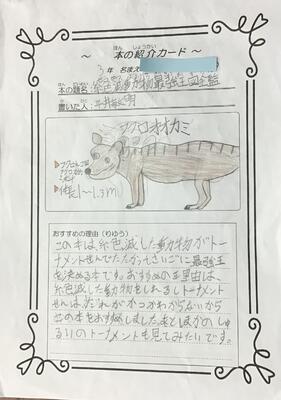 ～ 本の紹介カード ～
ほん しょうかい
3年 名まえ
本の題名: 絶滅動物最強王図鑑
書いた人:
フクロオオカミ
▶体長1〜1.3m
おすすめの理由(りゆう):
この本は絶色滅した動物がトー
ナメントせんでたたかってさいごに最強王
を決める本です。おすすめの理由は、
絶滅した動物をしれるしトーナメント
せんは、だれがかつかわからないから
この本をおすすめしました。あとほかのしゅ
るいのトーナメントも見てみたいです。